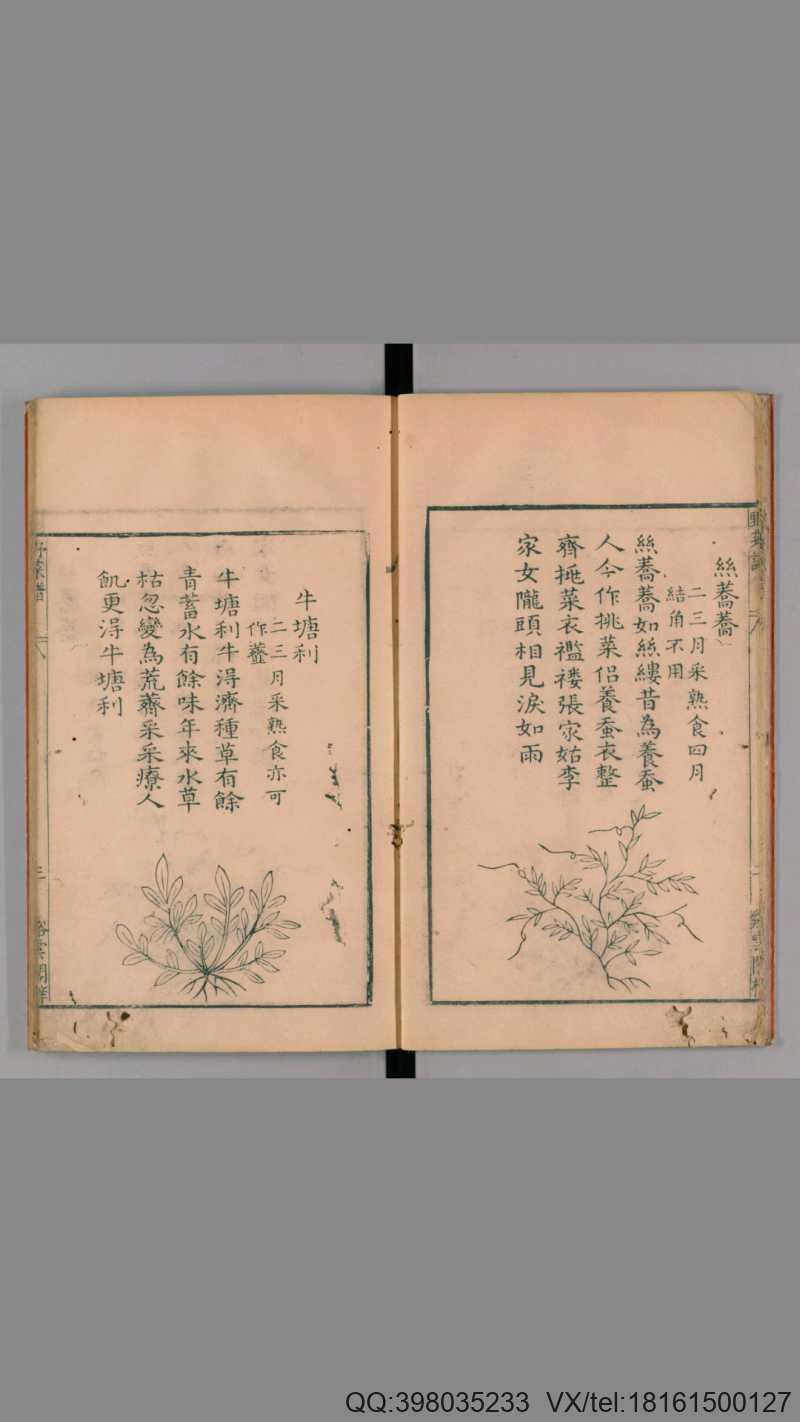 絲蕎蕎
二三月采熟食四月
結角不用
絲蕎蕎如絲縷昔為養蚕
人今作挑菜侶養蚕衣整
齊挑菜衣襤褸張家姑李
家女隴頭相見淚如雨
牛塘利
二三月采熟食亦可
作虀
牛塘利牛得濟種草有餘
青蓄水有餘味年來水草
枯忽變為荒薺采采療人
飢更得牛塘利
野菜譜
QQ:398035233 VX/tel:18161500127